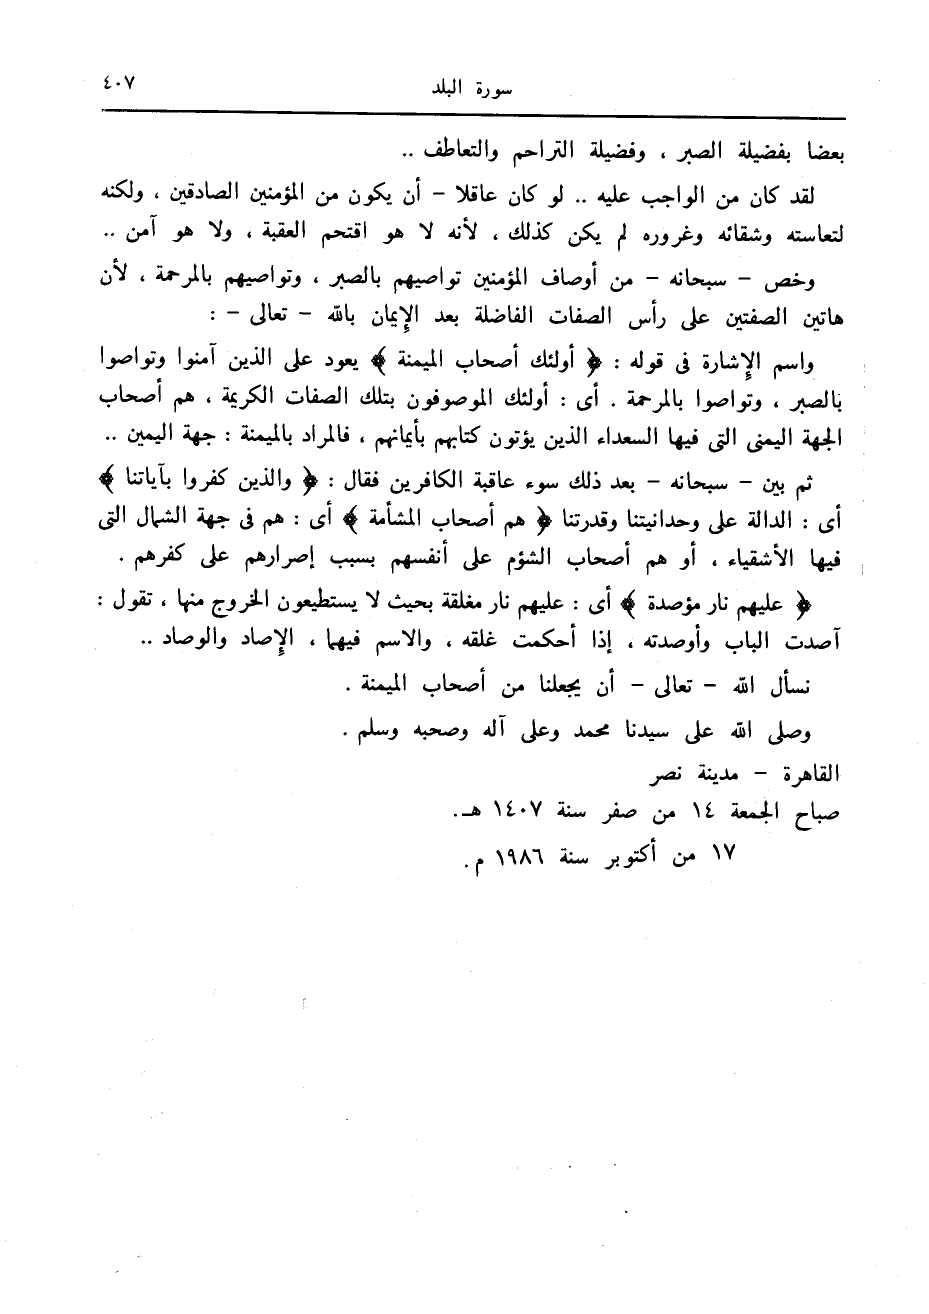 سورة البلد
٤٠٧
بعضا بفضيلة الصبر ، وفضيلة التراحم والتعاطف ..
لقد كان من الواجب عليه .. لو كان عاقلا – أن يكون من المؤمنين الصادقين ، ولكنه
لتعاسته وشقائه وغروره لم يكن كذلك ، لأنه لا هو اقتحم العقبة ، ولا هو آمن ..
وخص – سبحانه – من أوصاف المؤمنين تواصيهم بالصبر ، وتواصيهم بالمرحمة ، لأن
هاتين الصفتين على رأس الصفات الفاضلة بعد الإيمان بالله – تعالى – :
واسم الإشارة فى قوله : ﴿ أولئك أصحاب الميمنة ﴾ يعود على الذين آمنوا وتواصوا
بالصبر ، وتواصوا بالمرحمة . أى : أولئك الموصوفون بتلك الصفات الكريمة ، هم أصحاب
الجهة اليمنى التى فيها السعداء الذين يؤتون كتابهم بأيمانهم ، فالمراد بالميمنة : جهة اليمين ..
ثم بين – سبحانه – بعد ذلك سوء عاقبة الكافرين فقال : ﴿ والذين كفروا بآياتنا ﴾
أى : الدالة على وحدانيتنا وقدرتنا ﴿ هم أصحاب المشأمة ﴾ أى : هم فى جهة الشمال التى
فيها الأشقياء ، أو هم أصحاب الشؤم على أنفسهم بسبب إصرارهم على كفرهم .
﴿ عليهم نار مؤصدة ﴾ أى : عليهم نار مغلقة بحيث لا يستطيعون الخروج منها ، تقول :
آصدت الباب وأوصدته ، إذا أحكمت غلقه ، والاسم فيهما ، الإصاد والوصاد ..
نسأل الله – تعالى – أن يجعلنا من أصحاب الميمنة .
وصلى الله على سيدنا محمد وعلى آله وصحبه وسلم .
القاهرة – مدينة نصر
صباح الجمعة ١٤ من صفر سنة ١٤٠٧ هـ.
١٧ من أكتوبر سنة ١٩٨٦ م.